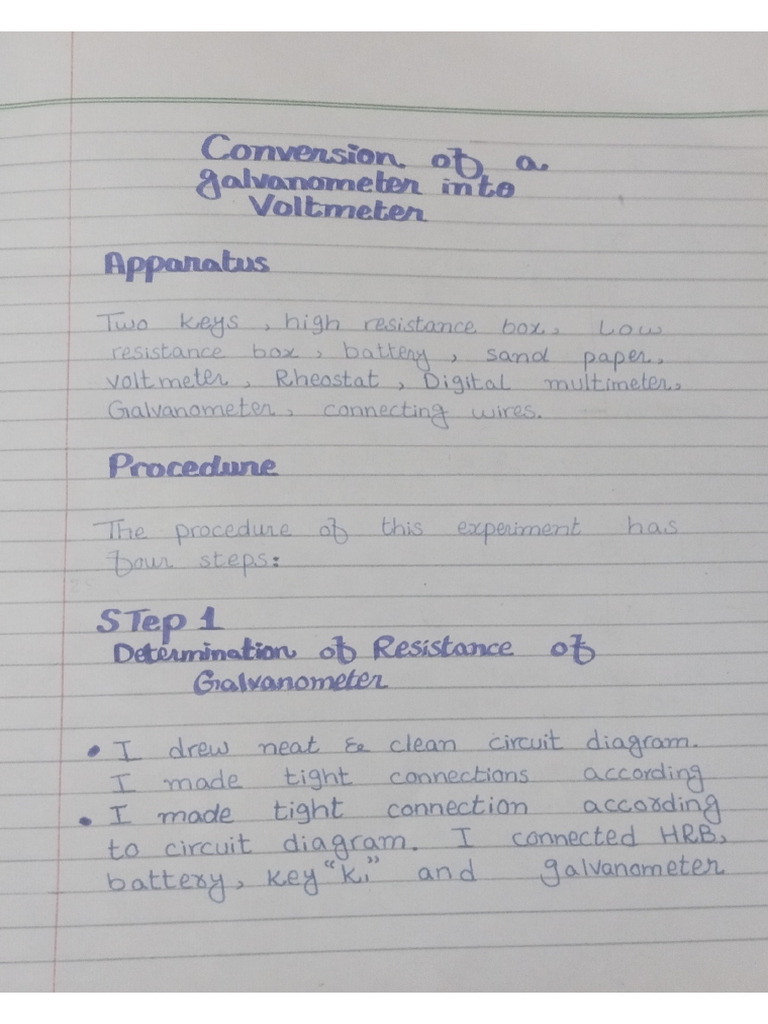 Conversion of a
galvanometer into
Voltmeter
Apparatus
Two keys, high resistance box, Low
resistance box, battery, sand paper,
voltmeter, Rheostat, Digital multimeter,
Galvanometer, connecting wires.
Procedure
The procedure of this experiment has
four steps:
STep 1
Determination of Resistance of
Galvanometer
• I drew neat & clean circuit diagram.
I made tight connections according
• I made tight connection according
to circuit diagram. I connected HRB,
battery, key "K₁" and galvanometer